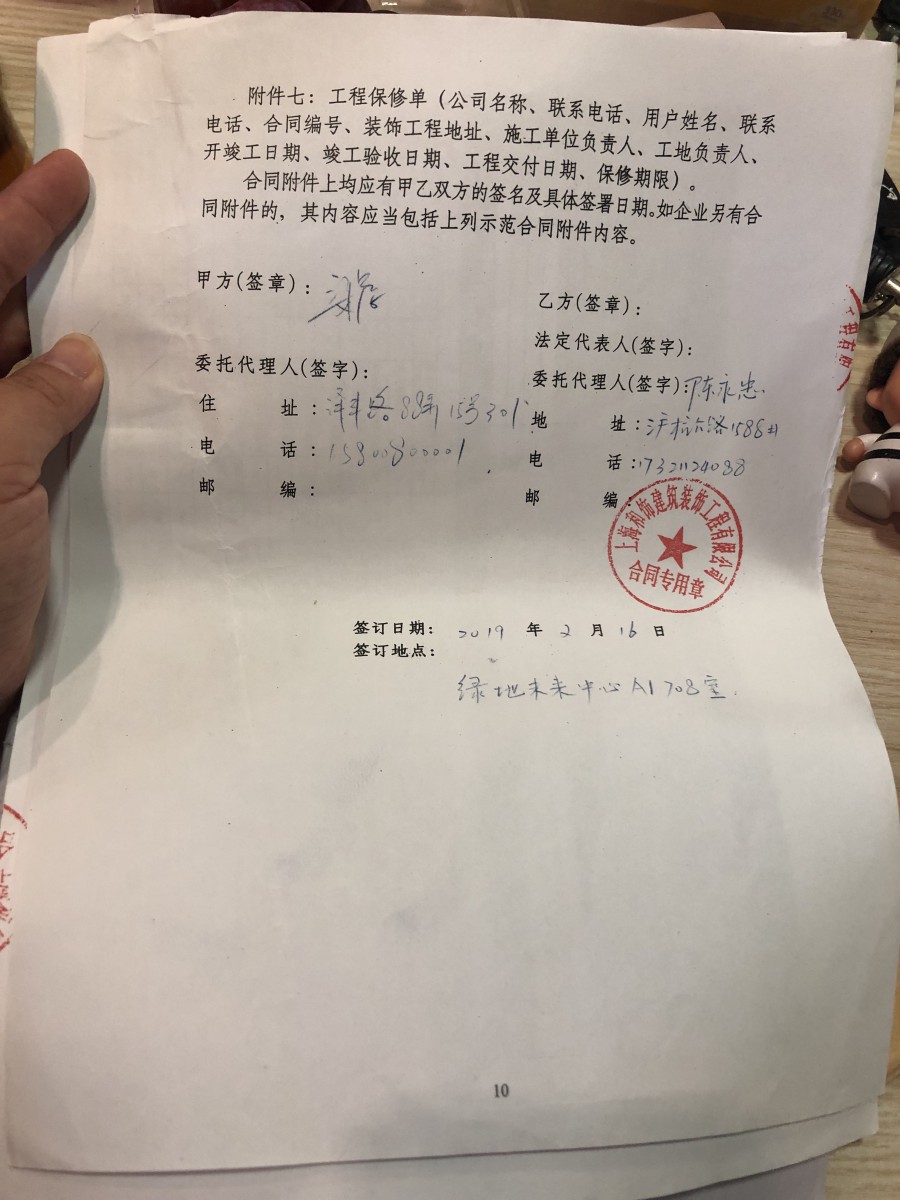 附件七：工程保修单（公司名称、联系电话、用户姓名、联系
电话、合同编号、装饰工程地址、施工单位负责人、工地负责人、
开竣工日期、竣工验收日期、工程交付日期、保修期限）。
合同附件上均应有甲乙双方的签名及具体签署日期。如企业另有合
同附件的，其内容应当包括上列示范合同附件内容。
甲方(签章)：
乙方(签章)：
法定代表人(签字)：
委托代理人(签字)：
委托代理人(签字)：陈永忠
住 址：路88弄15号301
地 址：沪松公路1588号
电 话：15800800001
电 话：17321124088
邮 编：
邮 编：
上海和饰建筑装饰工程有限公司
合同专用章
签订日期： 2019 年 2 月 16 日
签订地点：
绿地未来中心A1 708室.
10